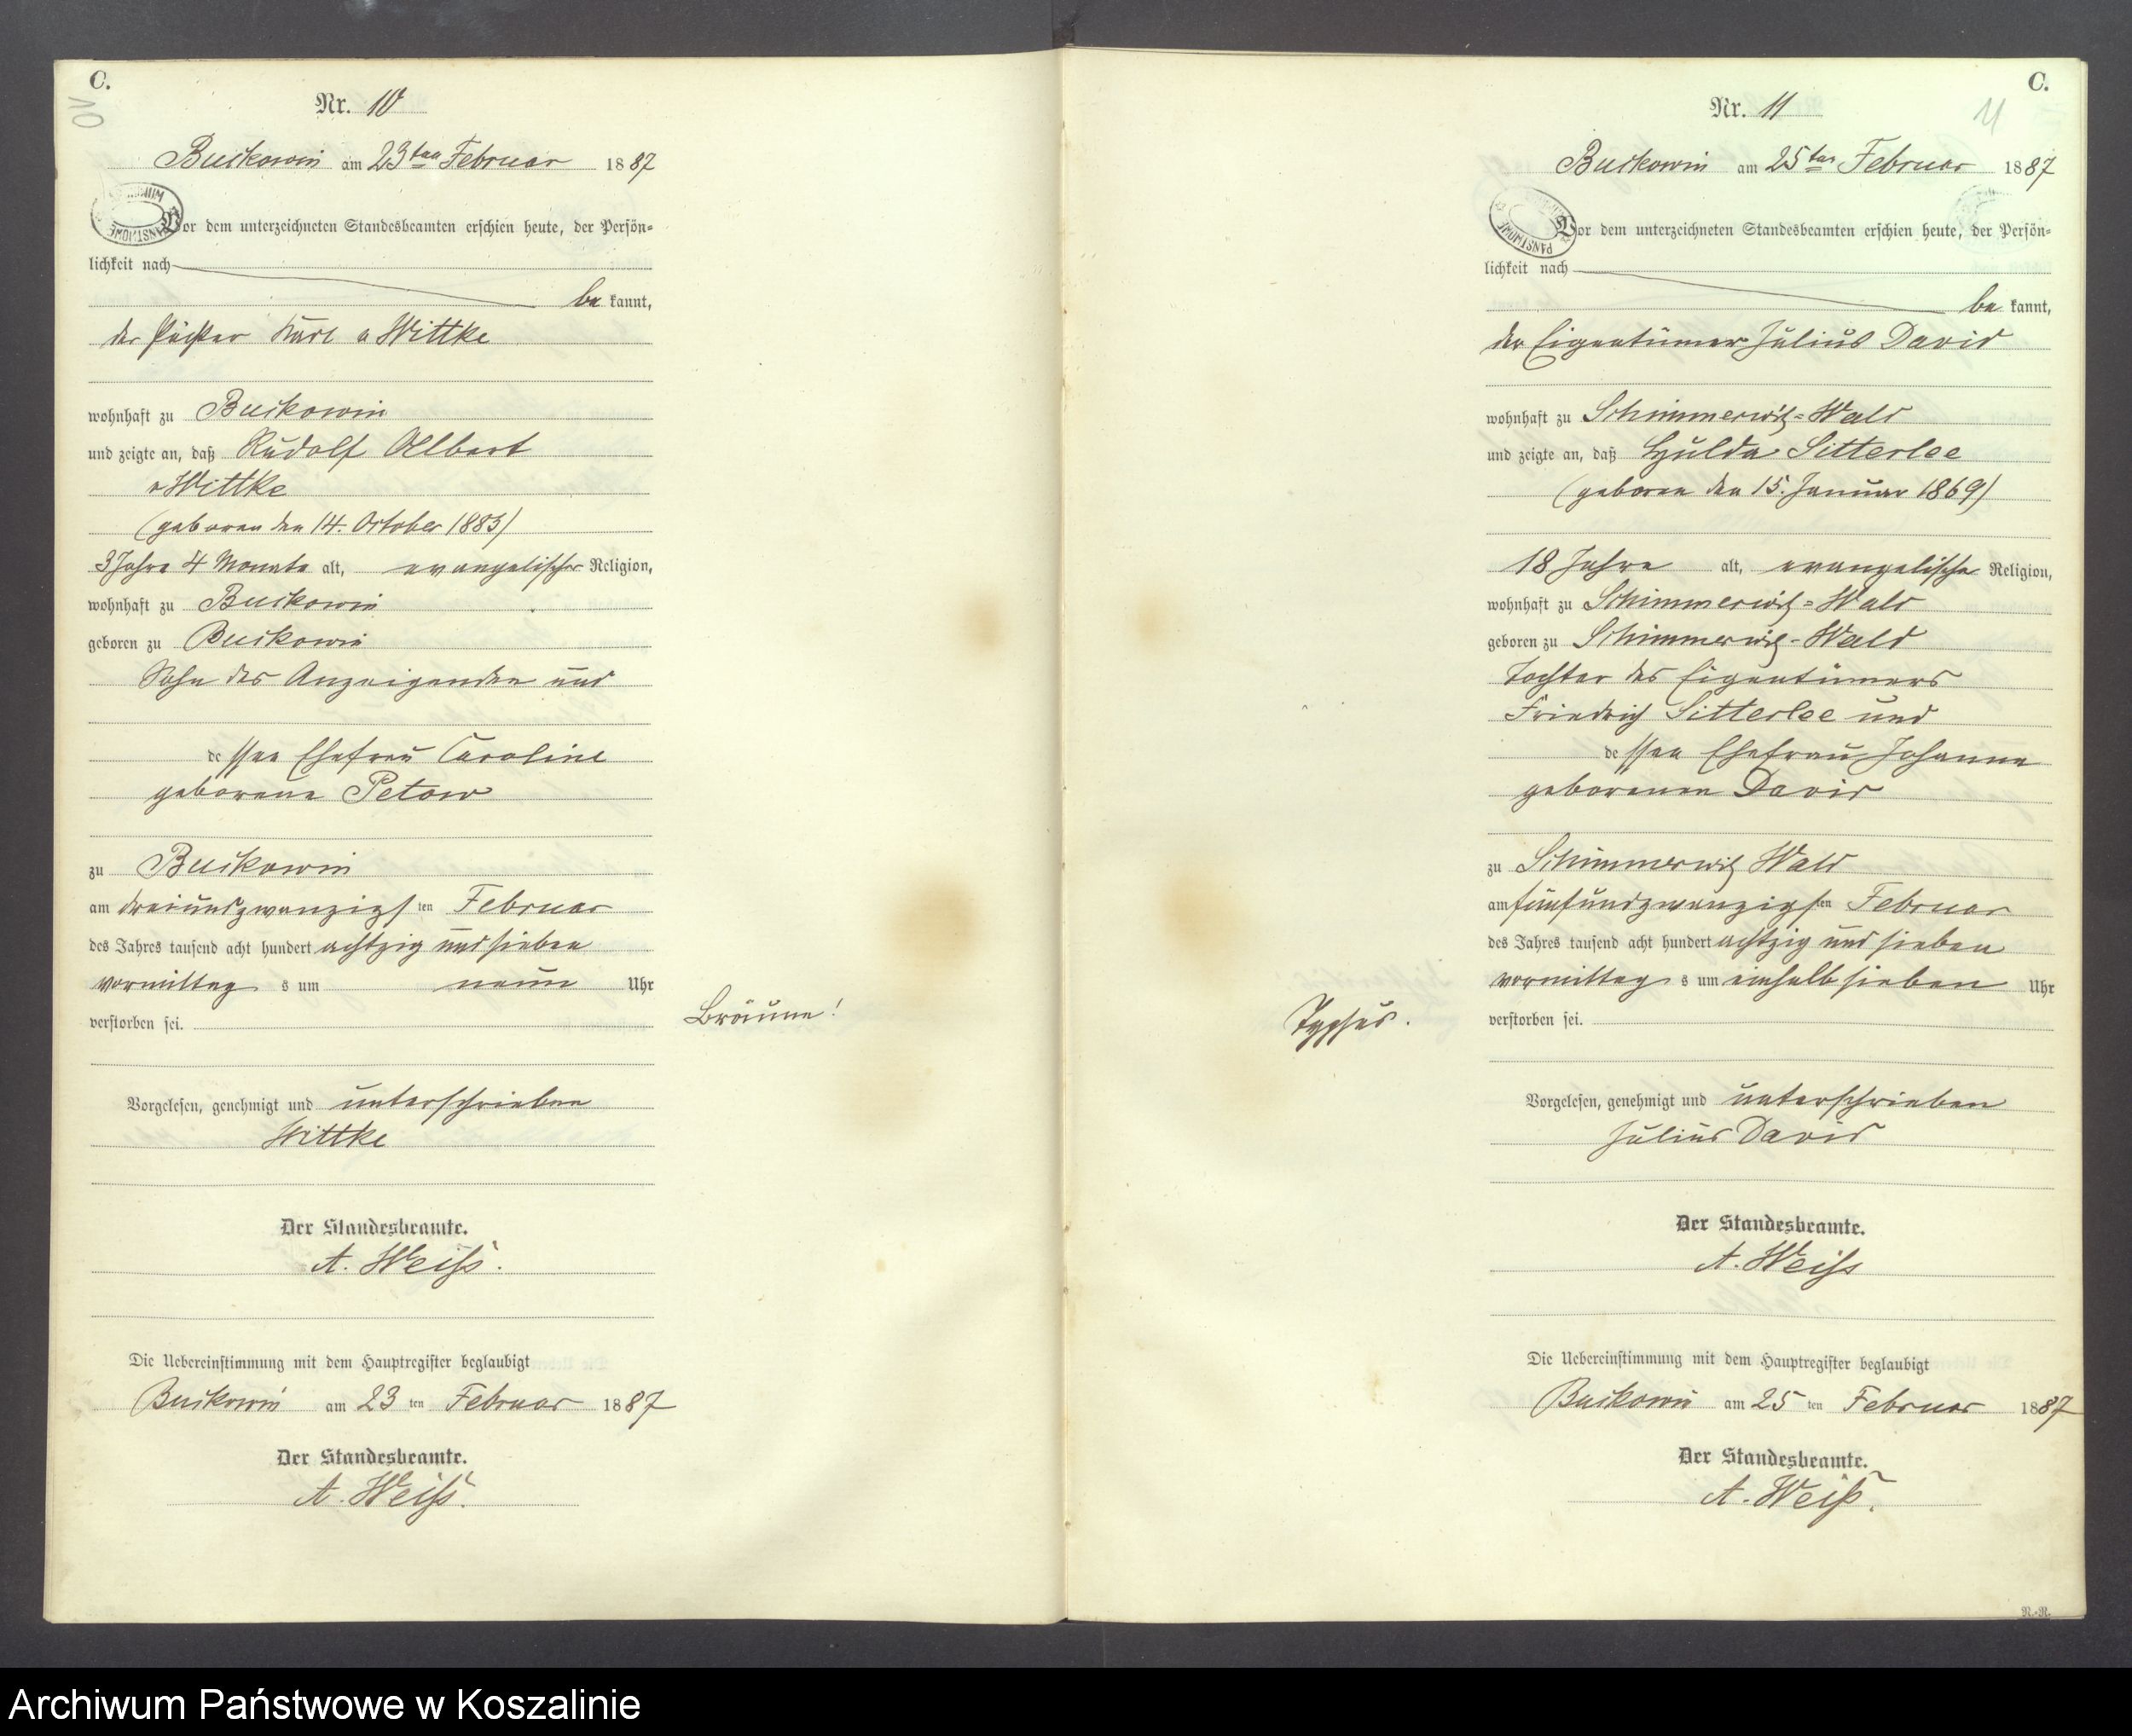 C.
10
Nr. 10
Buckowin am 23ten Februar 1887
Vor dem unterzeichneten Standesbeamten erschien heute, der Persön=
lichkeit nach
bekannt,
der Pächter Karl v Wittke
wohnhaft zu Buckowin
und zeigte an, daß Rudolf Albert
v Wittke
(geboren den 14. October 1883)
3 Jahre 4 Monate alt, evangelischer Religion,
wohnhaft zu Buckowin
geboren zu Buckowin
Sohn des Anzeigenden und
dessen Ehefrau Caroline
geborene Petow
zu Buckowin
am dreiundzwanzigsten Februar
des Jahres tausend acht hundert achtzig und sieben
vormittags um neun Uhr
verstorben sei.
Bräune!
Vorgelesen, genehmigt und unterschrieben
Wittke
Der Standesbeamte.
A. Weiß.
Die Uebereinstimmung mit dem Hauptregister beglaubigt
Buckowin am 23ten Februar 1887
Der Standesbeamte.
A. Weiß.
C.
11
Nr. 11
Buckowin am 25ten Februar 1887
Vor dem unterzeichneten Standesbeamten erschien heute, der Persön=
lichkeit nach
bekannt,
der Eigentümer Julius David
wohnhaft zu Schimmerwitz=Wald
und zeigte an, daß Hulda Sitterlee
(geboren den 15. Januar 1869)
18 Jahre alt, evangelischer Religion,
wohnhaft zu Schimmerwitz=Wald
geboren zu Schimmerwitz-Wald
Tochter des Eigentümers
Friedrich Sitterlee und
dessen Ehefrau Johanna
geborenen David
zu Schimmerwitz Wald
am fünfundzwanzigsten Februar
des Jahres tausend acht hundert achtzig und sieben
vormittags um einhalb sieben Uhr
verstorben sei.
Typhus.
Vorgelesen, genehmigt und unterschrieben
Julius David
Der Standesbeamte.
A. Weiß
Die Uebereinstimmung mit dem Hauptregister beglaubigt
Buckowin am 25ten Februar 1887
Der Standesbeamte.
A. Weiß.
R.-R.
Archiwum Państwowe w Koszalinie